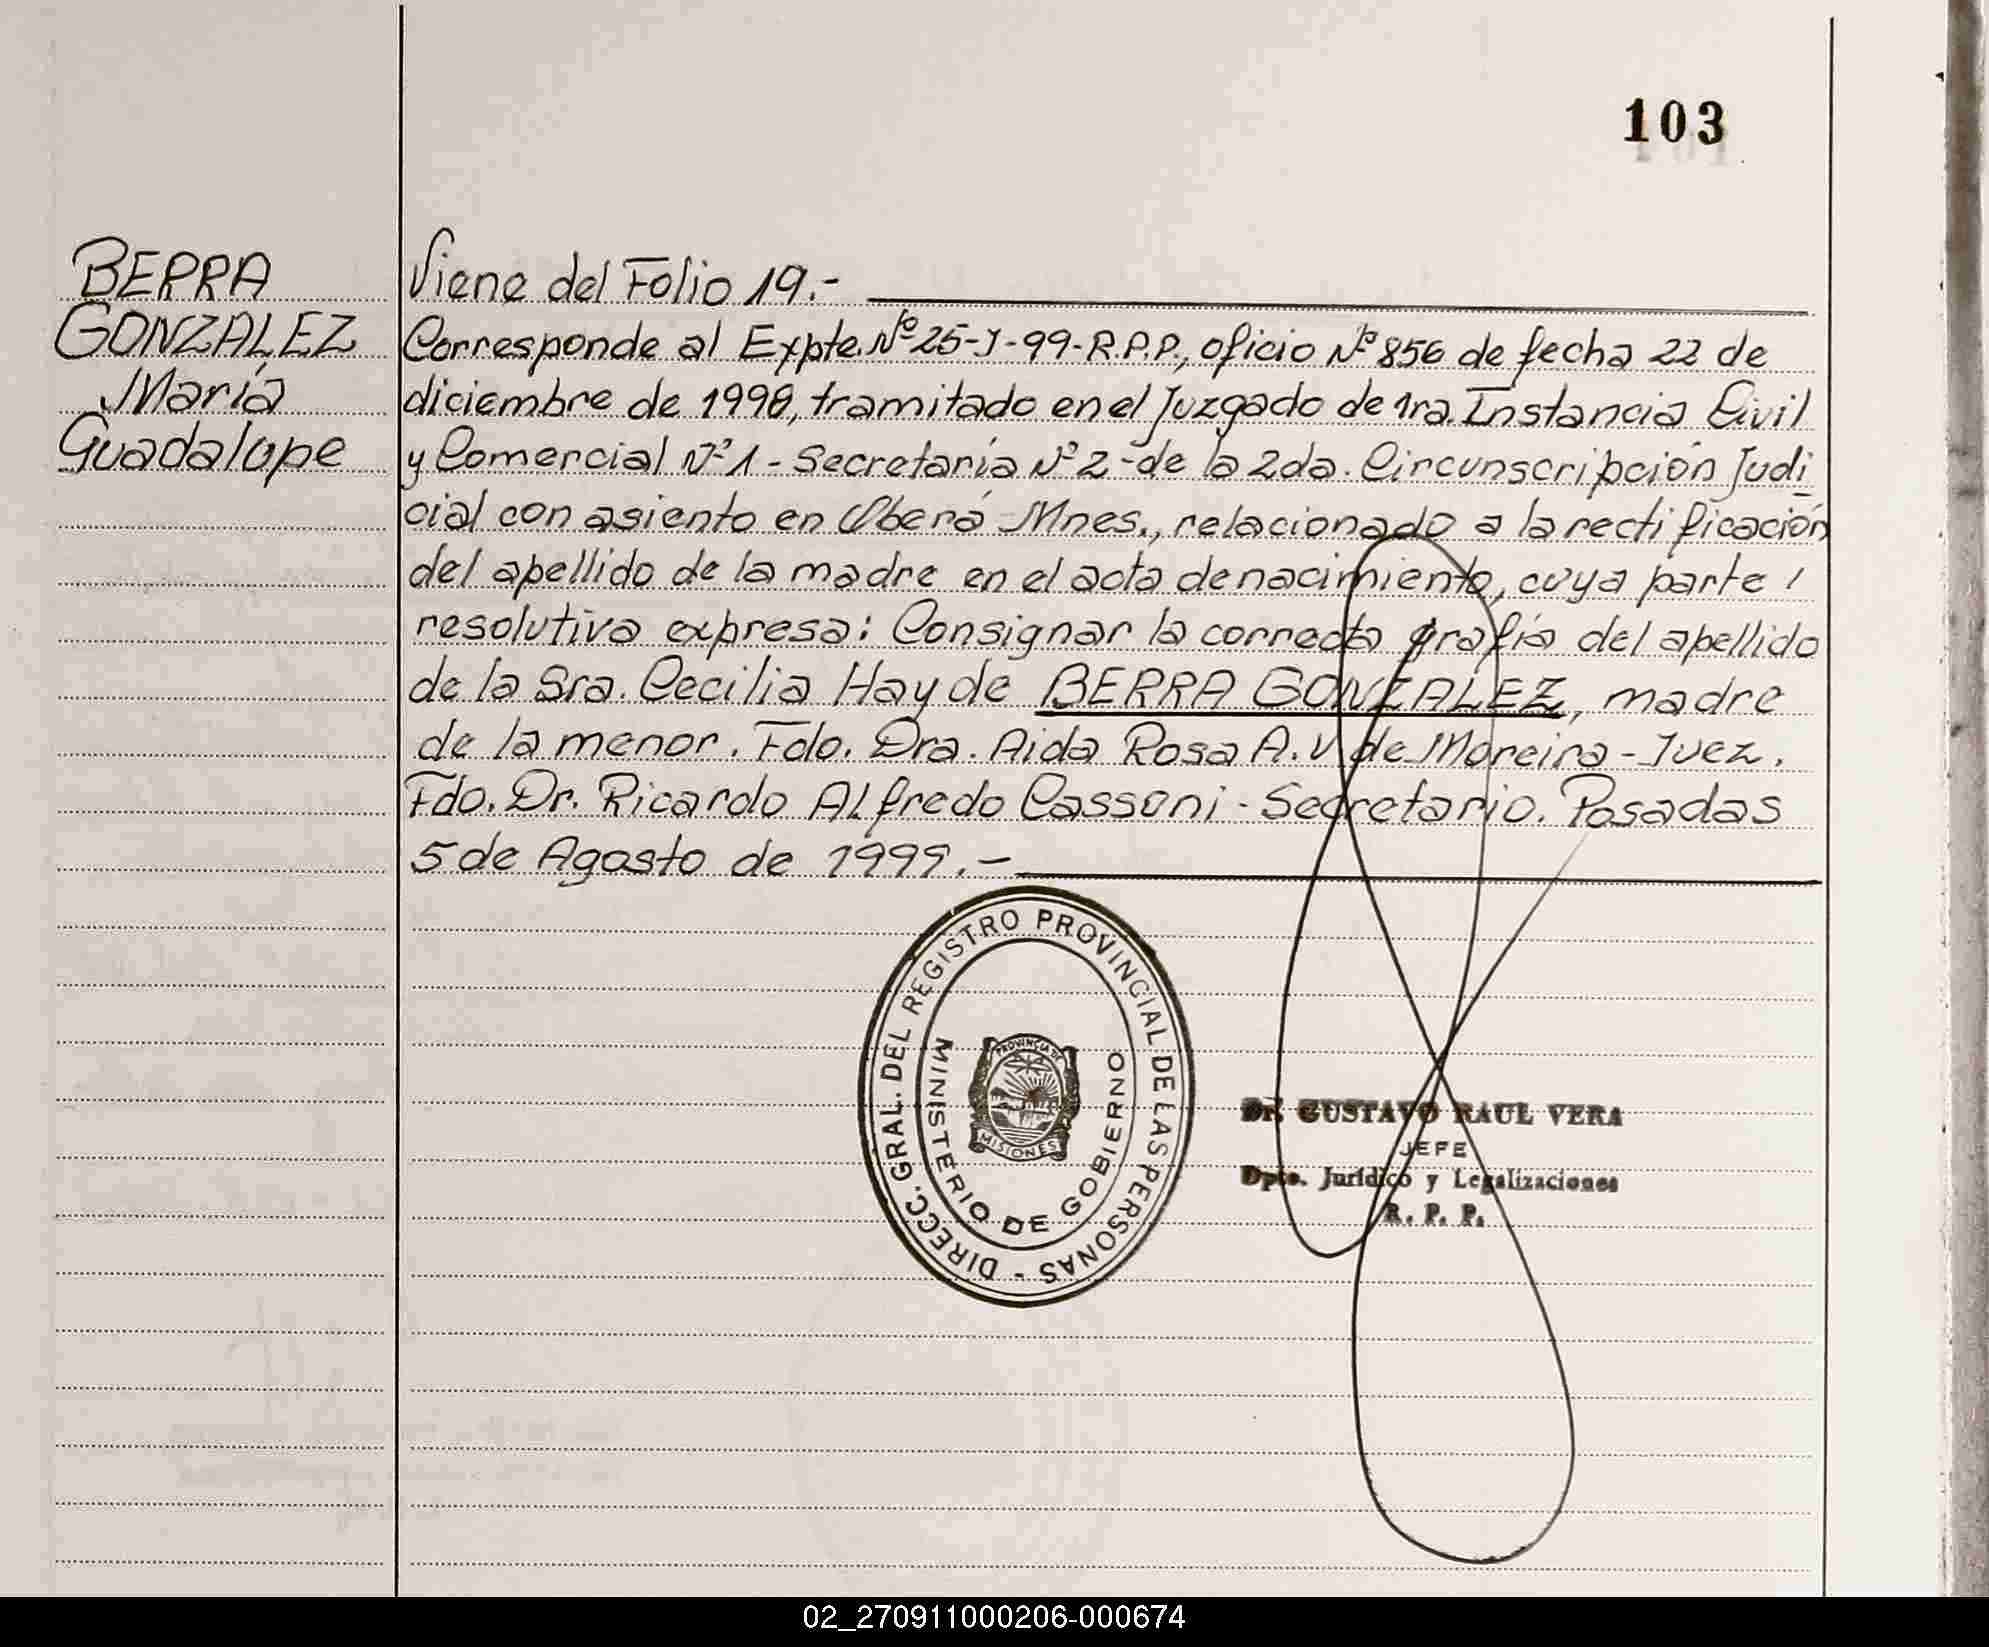 103
BERRA
GONZALEZ
María
Guadalupe
Viene del Folio 19.-
Corresponde al Expte. Nº 25-J-99-R.P.P., oficio Nº 856 de fecha 22 de
diciembre de 1998, tramitado en el Juzgado de 1ra. Instancia Civil
y Comercial Nº 1 - Secretaría Nº 2 - de la 2da. Circunscripción Judi
cial con asiento en Oberá Mnes., relacionado a la rectificación
del apellido de la madre en el acta de nacimiento, cuya parte /
resolutiva expresa: Consignar la correcta grafía del apellido
de la Sra. Cecilia Hayde BERRA GONZALEZ, madre
de la menor. Fdo. Dra. Aida Rosa A. V de Moreira - Juez.
Fdo. Dr. Ricardo Alfredo Cassoni - Secretario. Posadas
5 de Agosto de 1999.-
DIRECC. GRAL. DEL REGISTRO PROVINCIAL DE LAS PERSONAS -
MINISTERIO DE GOBIERNO
PROVINCIA DE
MISIONES
Dr. GUSTAVO RAUL VERA
JEFE
Dpto. Jurídico y Legalizaciones
R. P. P.
02_270911000206-000674